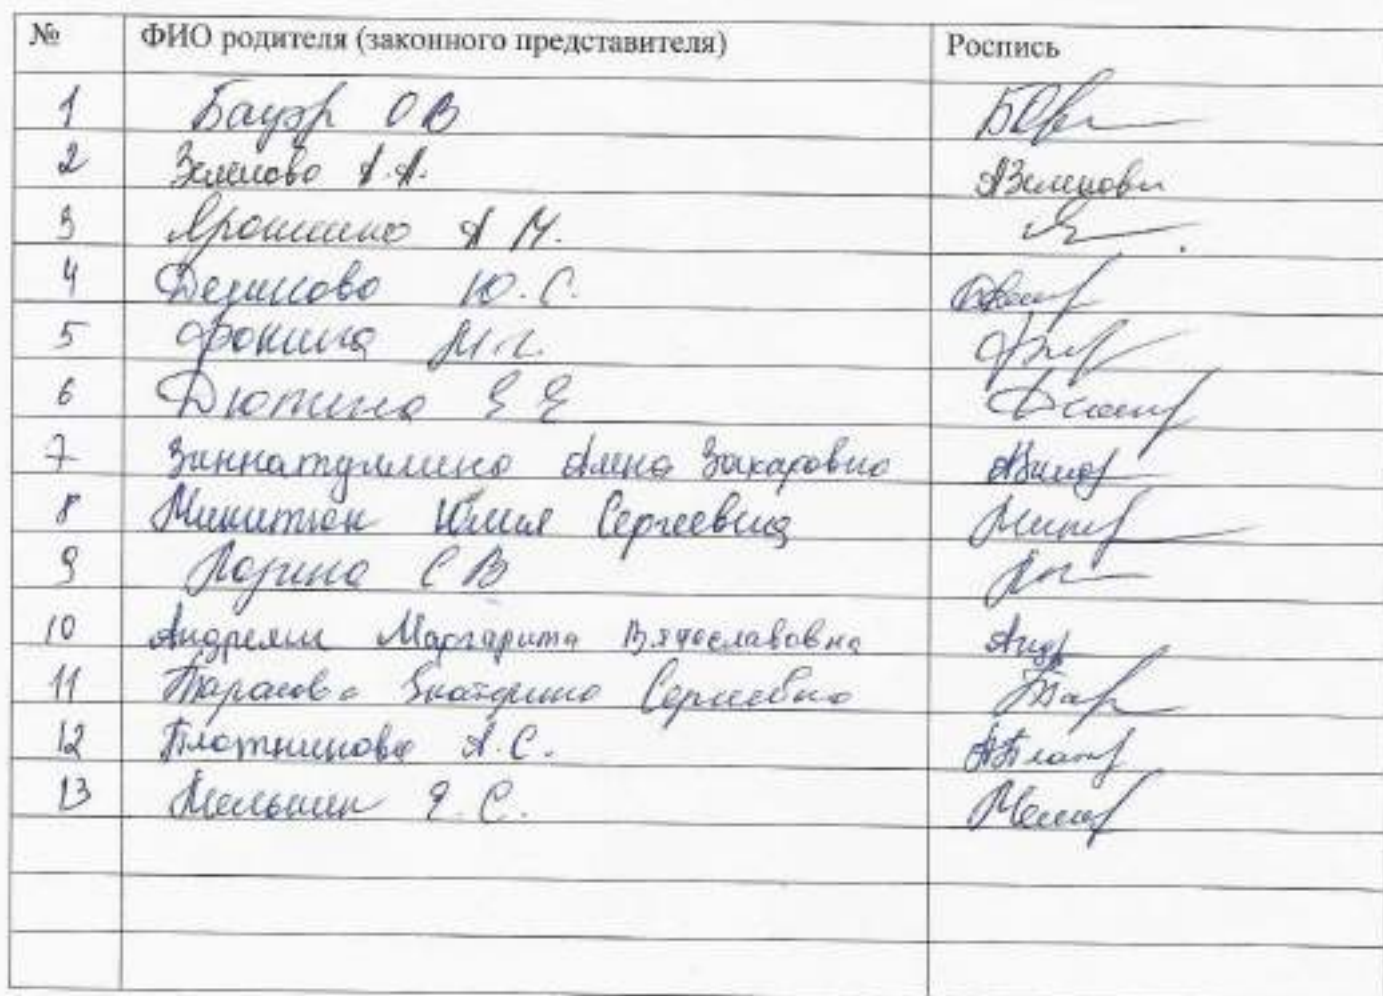 № ФИО родителя (законного представителя) Роспись
1 Бауэр О В
2 Зеленова А.А. АЗеленова
3 Ярошкина А М.
4 Денисова Ю.С.
5 Фокина М.
6 Дютина Е Е
7 Зиннатуллина Алена Захаровна
8 Микитюк Юлия Сергеевна
9 С В
10 Маргарита Вячеславовна Андр
11 Тарасова Екатерина Сергеевна Тар
12 Плотникова А.С.
13 Е.С.